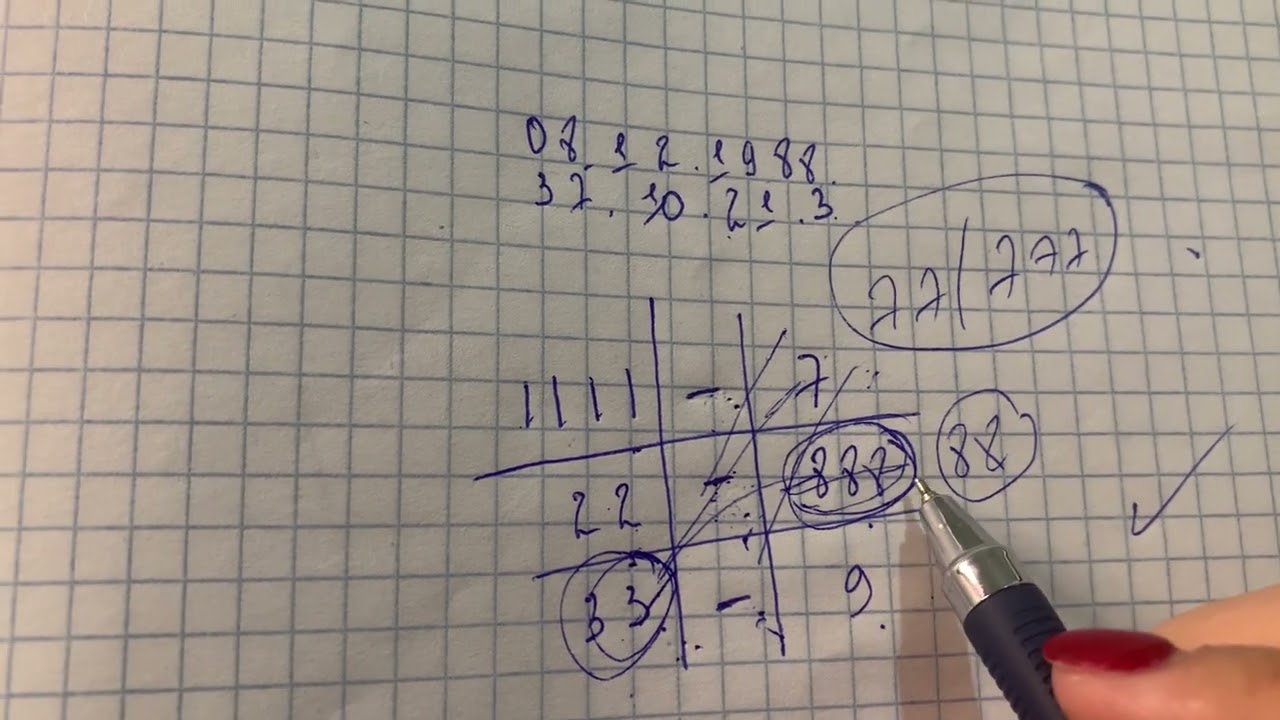 08.12.1988.
37.10.21.3.
77/777
1111 - 7
22 - 888 88
33 - 9